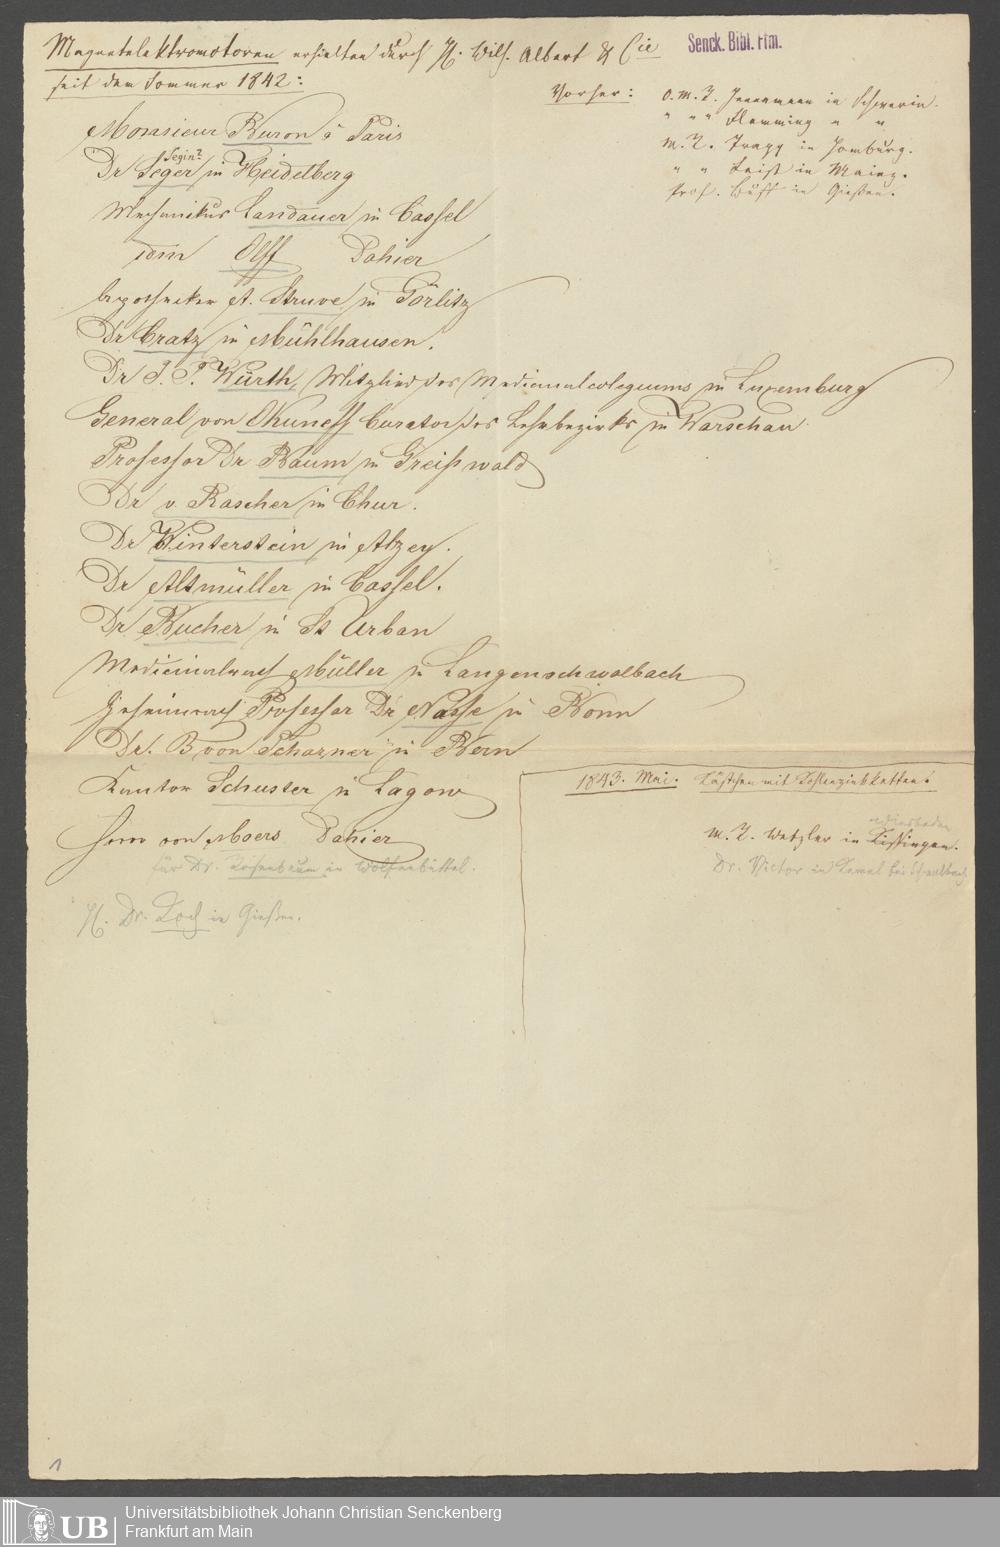 Magnetelektromotoren erhielten durch H. Wilh. Albert & Cie
seit dem Sommer 1842:
Senck. Bibl. Ffm.
Vorher: O. M. R. Hennemann in Schwerin.
" " " Flemming " "
M. R. Trapp in Homburg.
" " Leist in Mainz.
Prof. Buff in Gießen.
Monsieur Buron à Paris
Segin?
Dr Seger in Heidelberg
Mechanikus Landauer in Cassel
idem Olff Dahier
Apotheker A. Struve in Görlitz
Dr Cratz in Mühlhausen.
Dr J. P. Würth, Mitglied des Medicinalcolegiums in Luxemburg
General von Okuneff Curator des Lehrbezirks in Warschau
Professor Dr Baum in Greifswald
Dr v. Rascher in Chur.
Dr Winterstein in Alzey.
Dr Altmüller in Cassel.
Dr Bucher in St Urban
Medicinalrath Müller in Langenschwalbach
Geheimrath Professor Dr Nasse in Bonn
Dr. B von Scharner in Bern
Kantor Schuster in Lagow
Herrn von Moers Dahier
für Dr. Rosenbaum in Wolfenbüttel.
H. Dr. Koch in Gießen.
1843. Mai. Kästchen mit Kohlenzinkketten:
Wiesbaden
M. R. Wetzler in Kissingen.
Dr. Victor in Kemel bei Schwalbach
1
UB Universitätsbibliothek Johann Christian Senckenberg
Frankfurt am Main